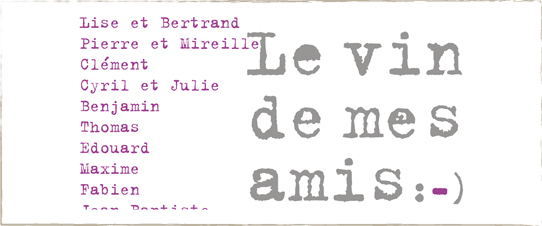 Lise et Bertrand
Pierre et Mireille
Clément
Cyril et Julie
Benjamin
Thomas
Edouard
Maxime
Fabien
Le vin
de mes
amis:-)